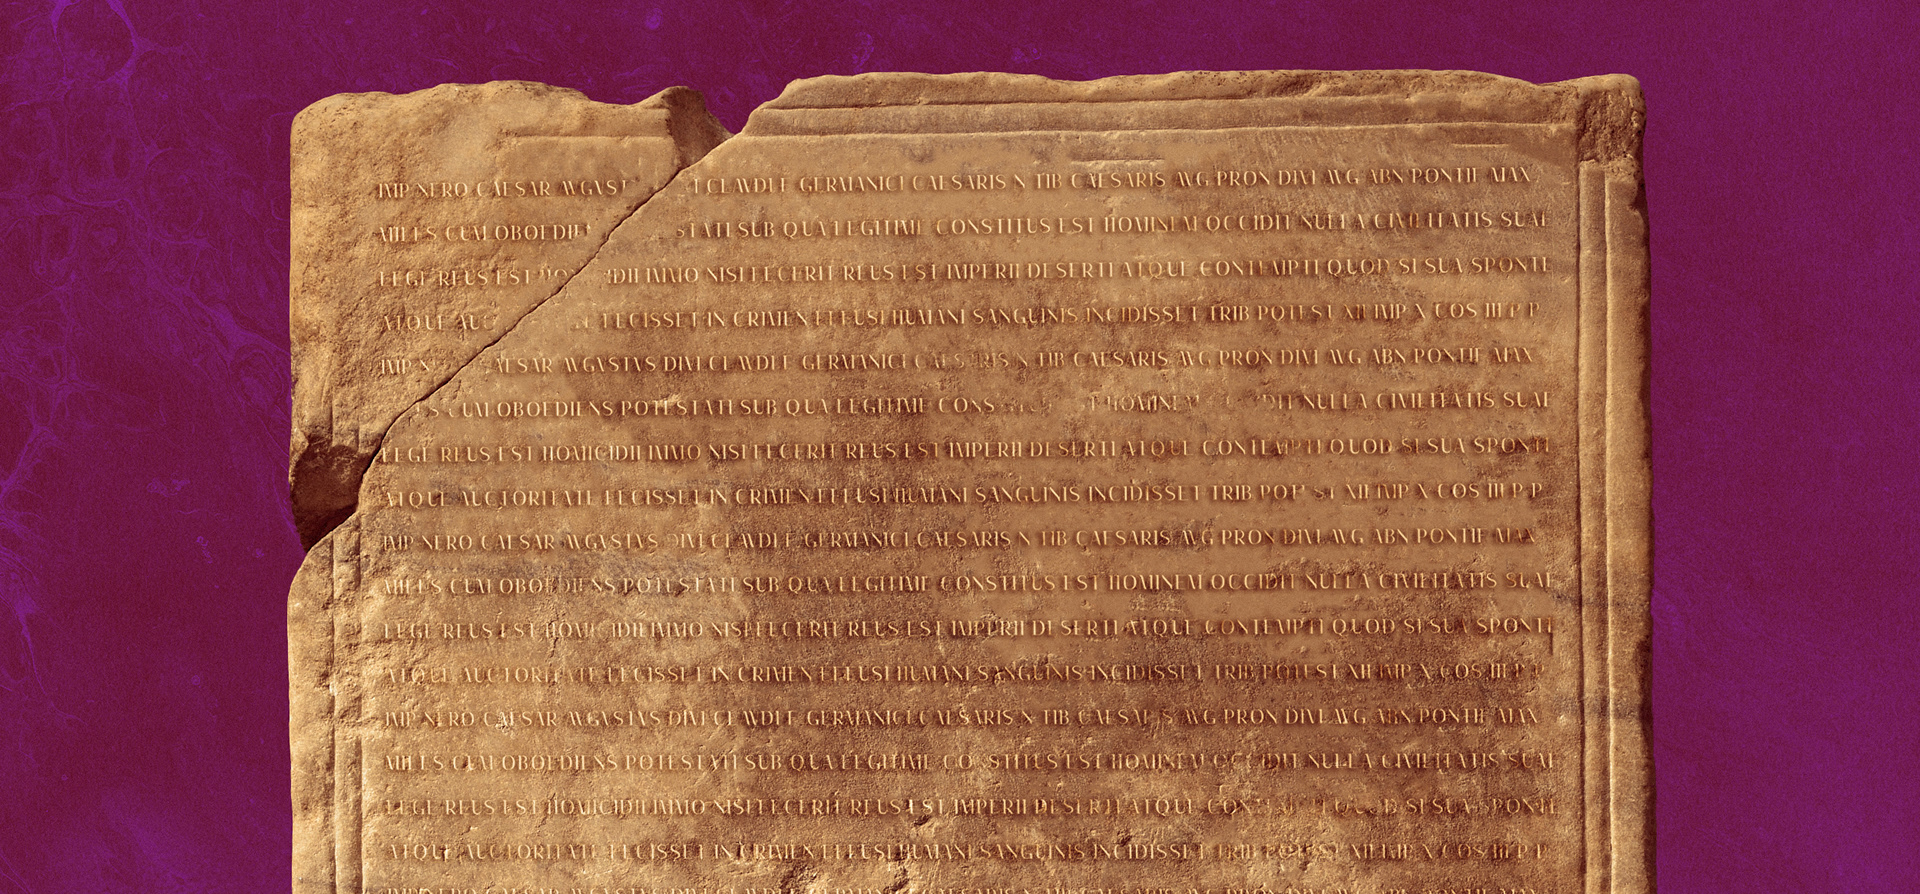 IMP NERO CAESAR AVGVST I CLAVDI F GERMANICI CAESARIS N TIB CAESARIS AVG PRON DIVI AVG ABN PONTIF MAX
MILES CUM OBOEDIE STATI SUB QUA LEGITIME CONSTITUS EST HOMINEM OCCIDIT NULLA CIVILITATIS SUAE
LEGE REUS EST HOM IDII IMMO NISI FECERIT REUS EST IMPERII DESERTI ATQUE CONTEMPTI QUOD SI SUA SPONTE
ATQUE AUC FECISSET IN CRIMEN EFFUSI HUMANI SANGUINIS INCIDISSET TRIB POTEST XII IMP X COS IIII P P
IMP N AESAR AVGVSTVS DIVI CLAVDI F GERMANICI CAESARIS N TIB CAESARIS AVG PRON DIVI AVG ABN PONTIF MAX
ES CUM OBOEDIENS POTESTATI SUB QUA LEGITIME CONS T HOMINEM IDIT NULLA CIVILITATIS SUAE
LEGE REUS EST HOMICIDII IMMO NISI FECERIT REUS EST IMPERII DESERTI ATQUE CONTEMPTI QUOD SI SUA SPONTE
ATQUE AUCTORITATE FECISSET IN CRIMEN EFFUSI HUMANI SANGUINIS INCIDISSET TRIB POT ST XII IMP X COS IIII P P
IMP NERO CAESAR AVGVSTVS DIVI CLAVDI F GERMANICI CAESARIS N TIB CAESARIS AVG PRON DIVI AVG ABN PONTIF MAX
MILES CUM OBOEDIENS POTESTATI SUB QUA LEGITIME CONSTITUS EST HOMINEM OCCIDIT NULLA CIVILITATIS SUAE
LEGE REUS EST HOMICIDII IMMO NISI FECERIT REUS EST IMPERII DESERTI ATQUE CONTEMPTI QUOD SI SUA SPONTE
ATQUE AUCTORITATE FECISSET IN CRIMEN EFFUSI HUMANI SANGUINIS INCIDISSET TRIB POTEST XII IMP X COS IIII P P
IMP NERO CAESAR AVGVSTVS DIVI CLAVDI F GERMANICI CAESARIS N TIB CAESARIS AVG PRON DIVI AVG ABN PONTIF MAX
MILES CUM OBOEDIENS POTESTATI SUB QUA LEGITIME CO STITUS EST HOMINEM OCCIDIT NULLA CIVILITATIS SUAE
LEGE REUS EST HOMICIDII IMMO NISI FECERIT REUS EST IMPERII DESERTI ATQUE CON SI SUA SPONTE
ATQUE AUCTORITATE FECISSET IN CRIMEN EFFUSI HUMANI SANGUINIS INCIDISSET TRIB POTEST XII IMP X COS IIII P P